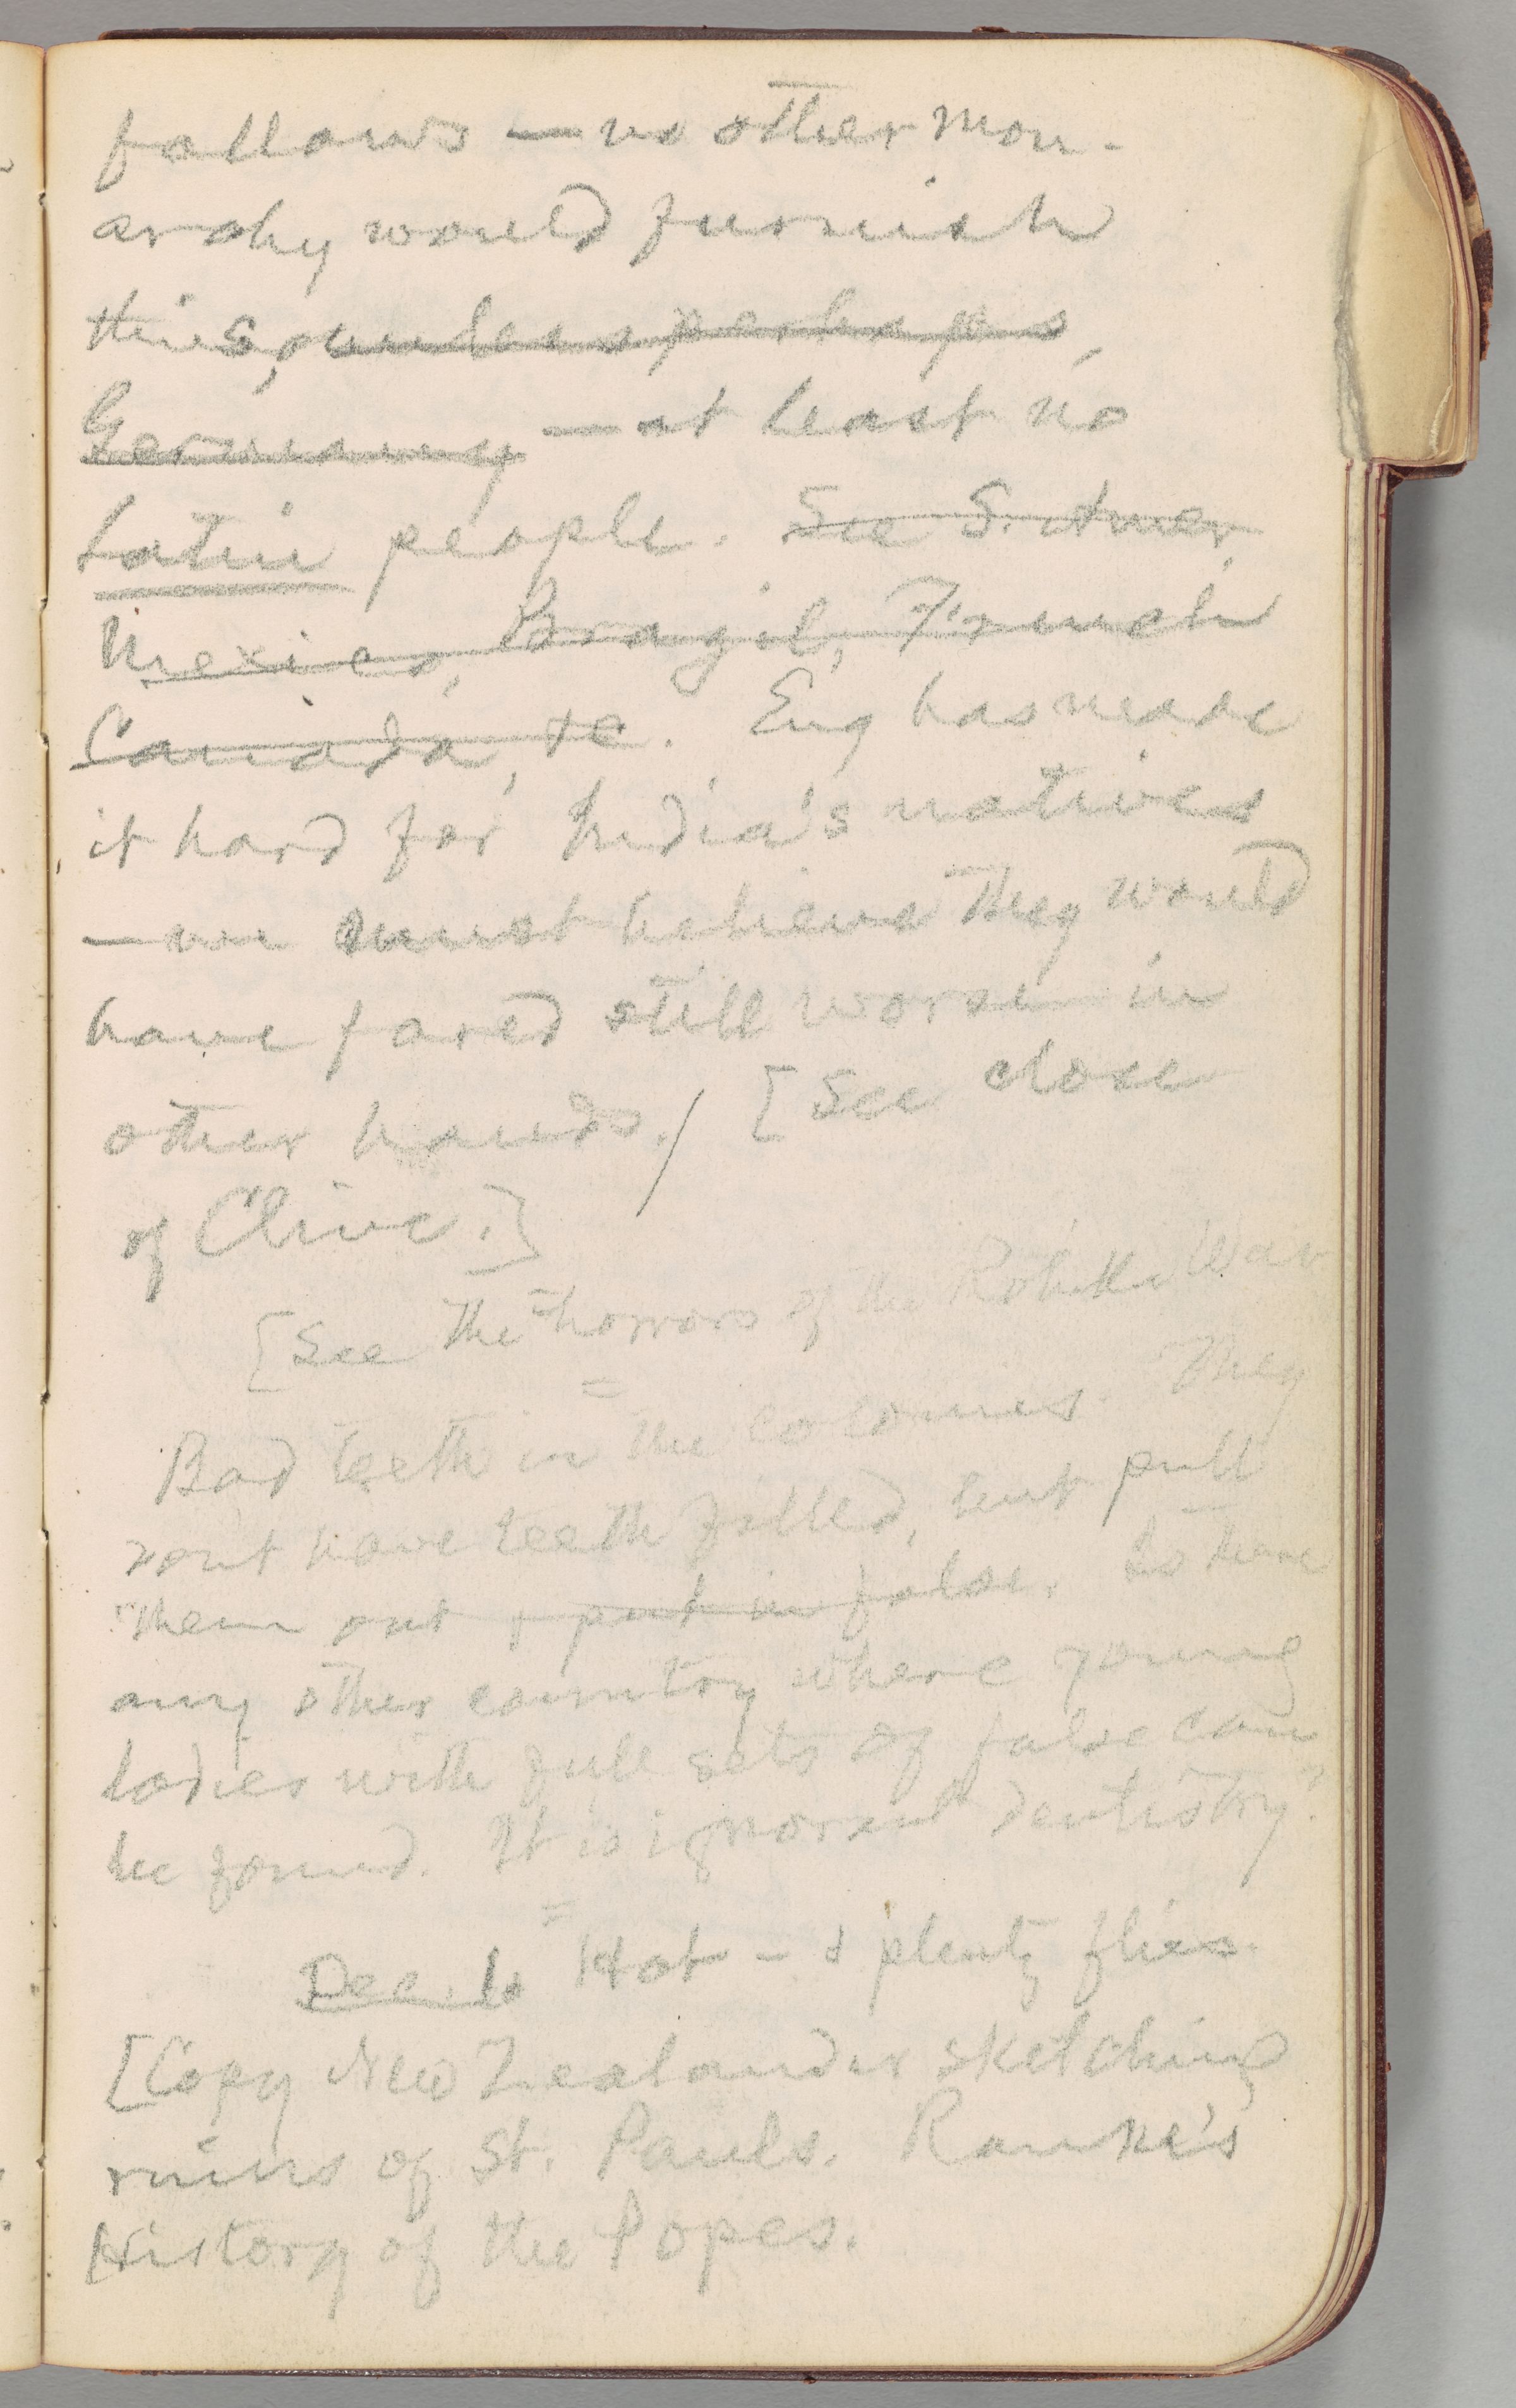 follows — no other mon-
archy would furnish
this, unless perhaps,
Germany — at least no
Latin people. See S. Amer,
Mexico, Brazil, French
Canada, &c. Eng has made
it hard for India's natives
— we must believe they would
have fared still worse in
other hands./ [See close
of Clive.]
[See the horrors of the Rohilla War
=
Bad teeth in the colonies. They
won't have teeth filled, but pull
them out & put in false. Is there
any other country where young
ladies with full sets of false can
be found. It is ignorant dentistry?
=
Dec. 1. Hot — & plenty flies.
[Copy New Zealander sketching
ruins of St. Pauls. Ranke's
History of the Popes.